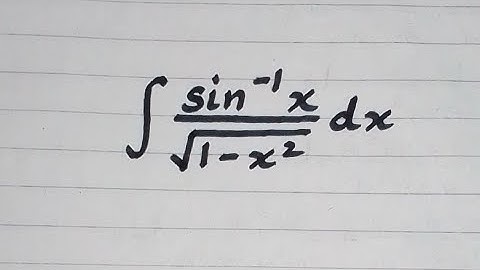 ∫ sin⁻¹x / √(1-x²) dx